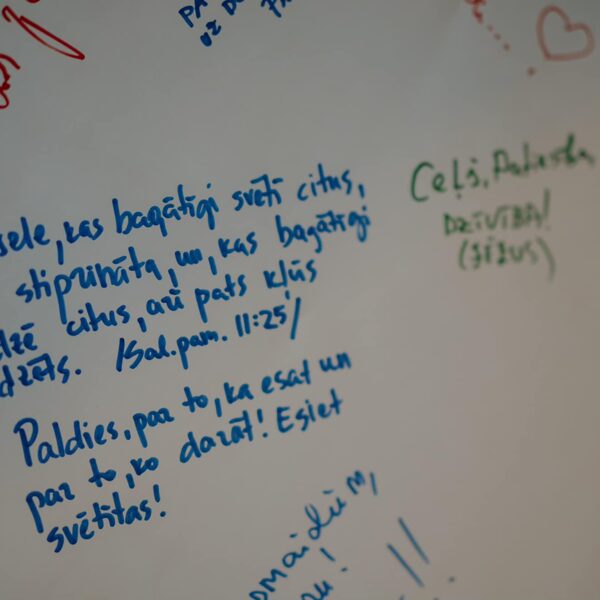 UZ
sele, kas bagātīgi svētī citus,
stiprināta, un, kas bagātīgi
dzē citus, arī pats kļūs
dzēts. /Sal.pam. 11:25/
Paldies, par to, ka esat un
par to, ko darāt! Esiet
svētītas!
Ceļš, Patiesība,
DZĪVĪBA!
(JĒZUS)
omaidām,
au!
!!